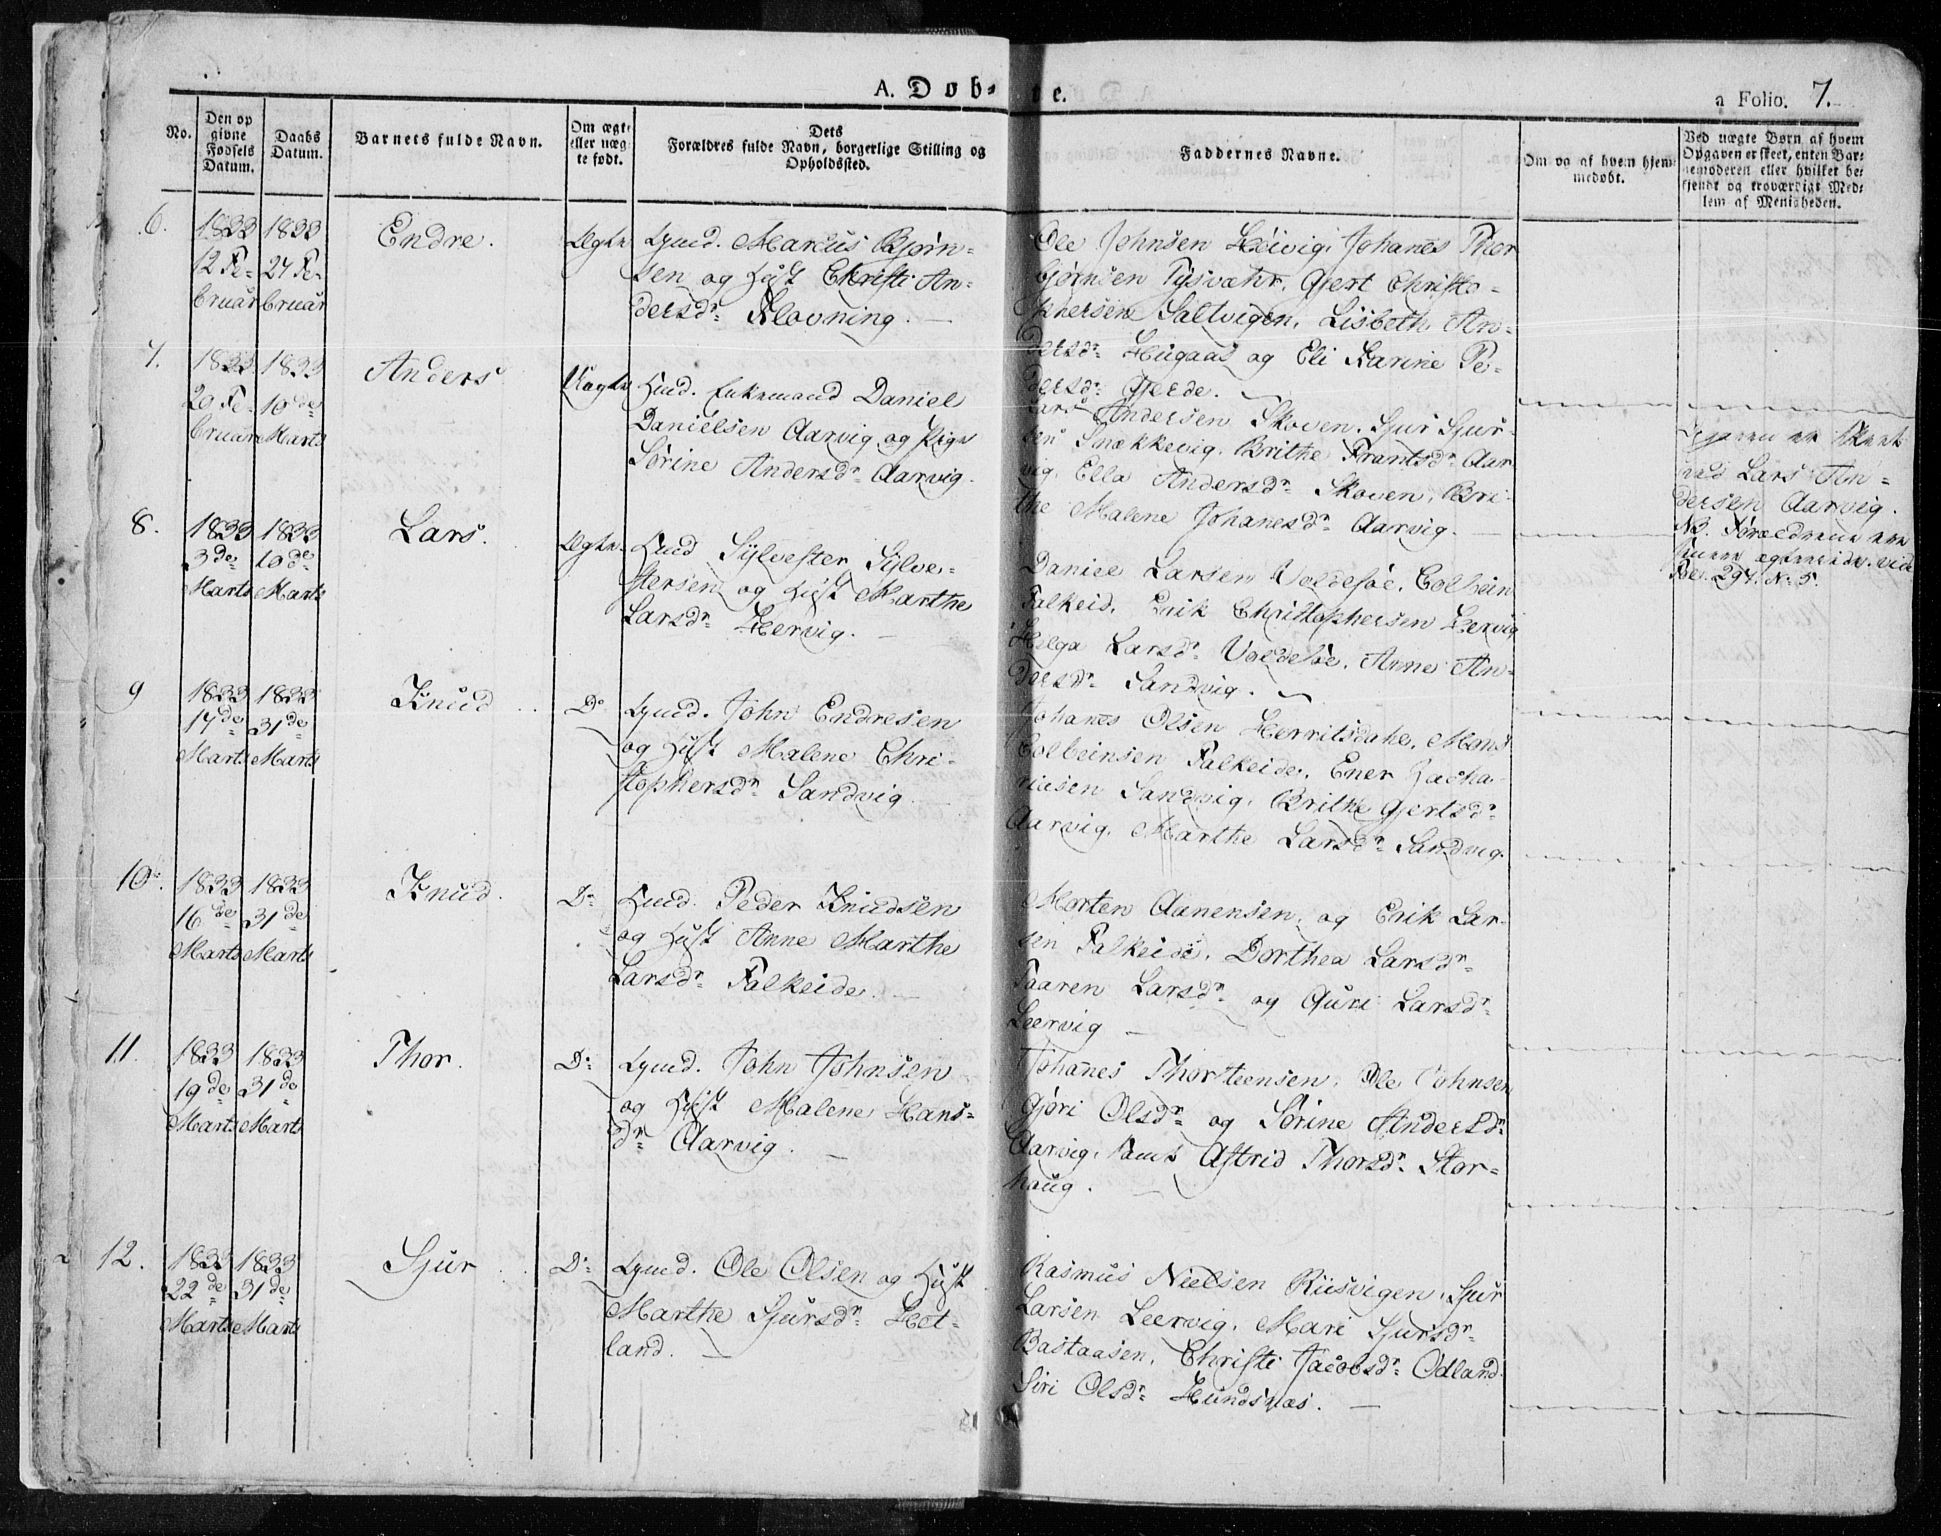 A. Døbte.
a Folio. 7.
No.
Den op
givne
Fødsels
Datum.
Daabs
Datum.
Barnets fulde Navn.
Om ægte
eller uæg
te født.
Dets
Forældres fulde Navn, borgerlige Stilling og
Opholdssted.
Faddernes Navne.
Om og af hvem hjem
medøbt.
Ved uægte Børn af hvem
Opgaven er skeet, enten Bar-
nemoderen eller hvilket be-
kjendt og troværdigt Med-
lem af Menigheden.
6.
1833
12 Fe-
bruar
1833
24 Fe-
bruar
Endre.
Ægte
Gmd. Marcus Bjørn-
sen og Hust Christi An-
dersdr. Klovning.
Ole Johnsen Høivig, Johanes Thor
bjørnsen Tysvæhr, Gjert Christo-
phersen Saltvigen, Lisbeth An-
dersdr. Hugaas og Eli Karine Pe-
dersdr. Gjerde.
7.
1833
20 Fe-
bruar
1833
10de
Marts
Anders
Uægte
Daniel
Danielsen Aarvig og Pige
Sørine Andersdr. Aarvig.
Lars Andersen Skoven, Sjur Sjur-
sen Snekkevig, Brithe Frantsdr. Aar
vig, Ella Andersdr. Skoven, Bri-
the Malene Johanesdr. Aarvig.
ved Lars An-
dersen Aarvig.
NB. Forældrene
vide
Pag. 294. No. 5.
8.
1833
3de
Marts
1833
10de
Marts
Lars.
Ægte.
Sylvester Sylve-
stersen og Hust Marthe
Larsdr. Hervig.
Daniel Larsen Voldsøe, Colbein
Falkeid, Erik Christophersen Hervig
Helga Larsdr. Voldsøe, Anne An-
dersdr. Sandvig.
9
1833
17de
Marts
1833
31de
Marts
Knud
Do
Gmd. John Endresen
og Hust Malene Chri-
stophersdr. Sandvig
Johanes Olsen Hervitsdahl, Mons
Colbeinsen Falkeide, Ener Zacha-
riasen Sandvig, Brithe Gjertsdr.
Aarvig, Marthe Larsdr. Sandvig.
10.
1833
16de
Marts
1833
31de
Marts
Knud.
Do
Peder Knudsen
og Hust Anne Marthe
Larsdr. Falkeide.
Morten Aanensen, og Erik Lar-
sen Falkeide, Dorthea Larsdr.
Faaren Larsdr. og Guri Larsdr.
Leervig
11.
1833
19de
Marts
1833
31de
Marts
Thor.
Do
Gmd. John Johnsen
og Hust Malene Hans-
dr. Aarvig.
Johanes Thorsteensen, Ole Johnsen
Gjøri Olsdr. og Sørine Andersdr.
Aarvig, samt Astrid Thorsdr. Stor-
haug.
12.
1833
22de
Marts
1833
31de
Marts
Sjur
Do
Gmd. Ole Olsen og Hust
Marthe Sjursdr. Het-
land.
Rasmus Nielsen Riisvigen, Sjur
Larsen Leervig, Mari Sjursdr.
Bastaasen, Christi Jacobsdr. Odland
Siri Olsdr. Hundsnæs.